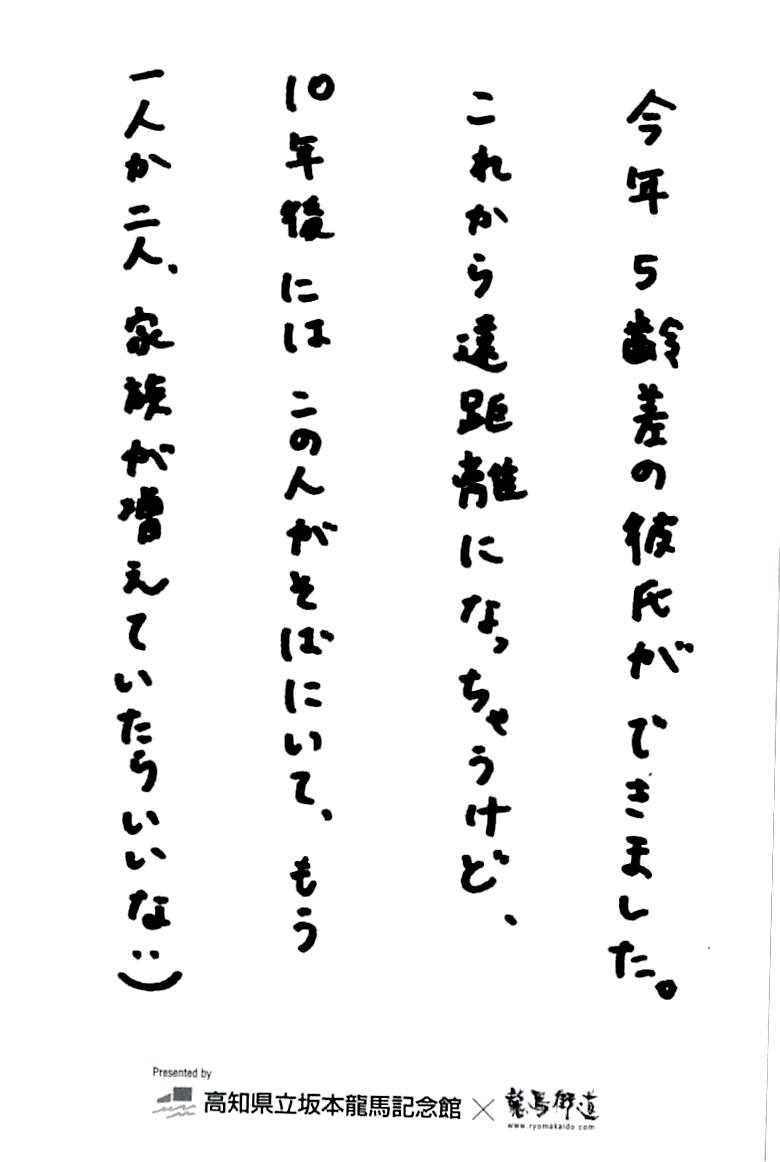 今年5齢差の彼氏ができました。
これから遠距離になっちゃうけど、
10年後にはこの人がそばにいて、もう
一人か二人、家族が増えていたらいいな:)
Presented by
高知県立坂本龍馬記念館×龍馬街道
www.ryomakaido.com